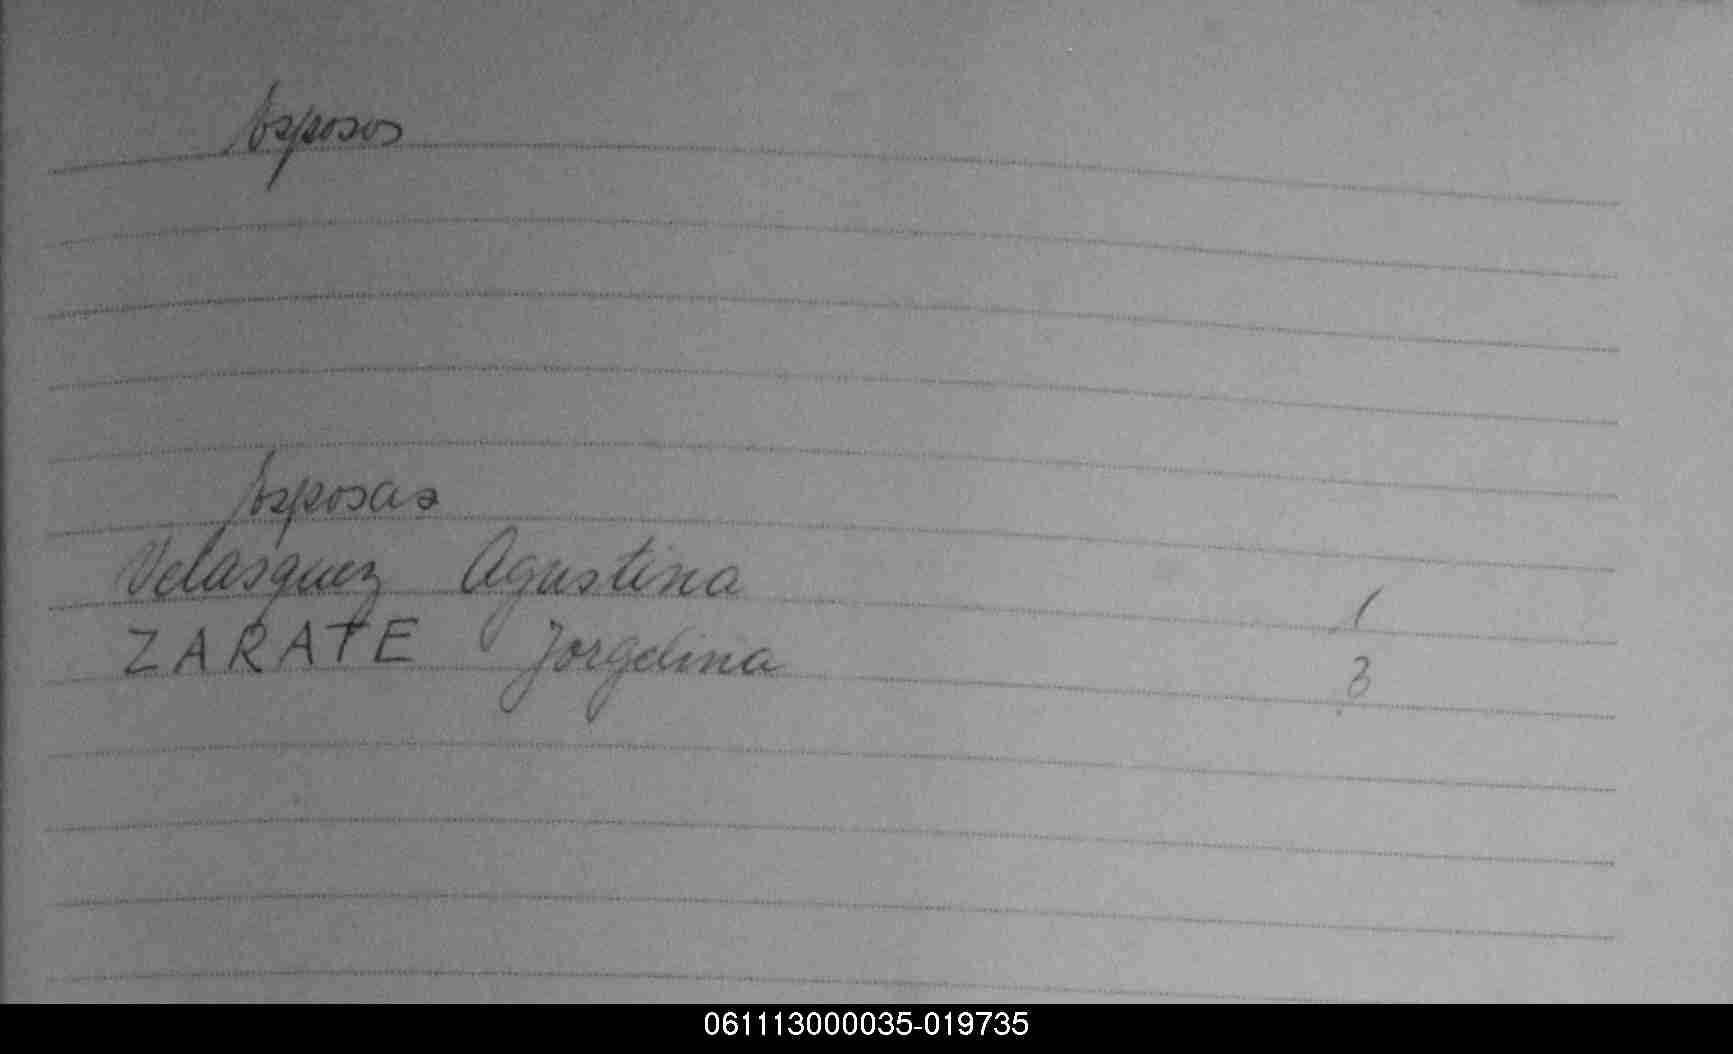 Esposos
Esposas
Velasquez Agustina 1
ZARATE Jorgelina 3
061113000035-019735